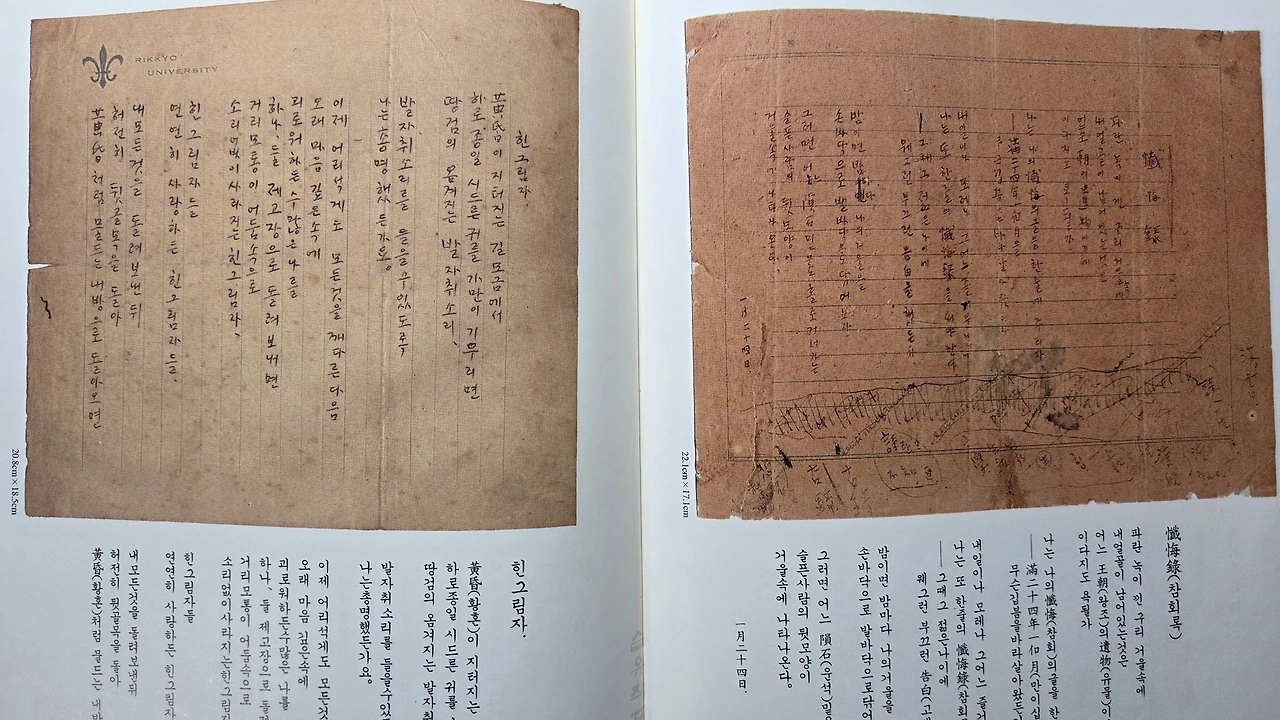 懺悔錄
파란 녹이 낀 구리 거울속에
내얼골이 남어있는것은
어느 王朝의遺物이기에
이다지도 욕될가
나는 나의 懺悔의글을 한줄에 주리자
滿二十四年一個月을
나는 또 한줄의 懺悔錄을 써야한다
그때 그 젊은나이에
웨그런 부끄런 告白을 했든가
밤이면 밤마다 나의거울을
손바닥으로 발바닥으로닦어보자
그러면 어느 隕石밑으로 홀로거러가는
슬픈사람의 뒷모양이
거울속에 나타나온다
一月二十四日
22.1cm×17.1cm
懺悔錄(참회록)
파란 녹이 낀 구리 거울속에
내얼골이 남어있는것은
어느 王朝(왕조)의遺物(유물)이
이다지도 욕될가
나는 나의 懺悔(참회)의글을 한
── 滿二十四年一個月(만이십
무슨깁븜을바라살아왔든
내일이나 모레나 그어느 즐거
나는 또 한줄의 懺悔錄(참회
── 그때그 젊은나이에
웨그런 부끄런 告白(고백
밤이면 밤마다 나의거울을
손바닥으로 발바닥으로닦어
그러면 어느 隕石(운석)밑
슬픈사람의 뒷모양이
거울속에 나타나온다.
一月二十四日.
RIKKYO
UNIVERSITY
힌그림자.
黃昏이 지터지는 길모금에서
하로종일 시드른 귀를 가만이 기우리면
땅검의 옴겨지는 발자취소리,
발자취소리를 들을수있도록
나는총명했든가요.
이제 어리석게도 모든것을 깨다른다음
오래 마음 깊은속에
괴로워하든수많은 나를
하나, 둘 제고장으로 돌려보내면
거리모퉁이 어둠속으로
소리없이사라지는힌그림자,
힌그림자들
연연히 사랑하든 힌그림자들,
내모든것을 돌려보낸뒤
허전히 뒷골목을 돌아
黃昏처럼 물드는 내방으로 돌아오면
20.8cm×18.5cm
힌그림자.
黃昏(황혼)이 지터지는
하로종일 시드른 귀를
땅검의 옴겨지는 발자취
발자취소리를 들을수있
나는총명했든가요.
이제 어리석게도 모든것
오래 마음 깊은속에
괴로워하든수많은 나를
하나, 둘 제고장으로 돌
거리모퉁이 어둠속으로
소리없이사라지는힌그림
힌그림자들
연연히 사랑하든 힌그림자
내모든것을 돌려보낸뒤
허전히 뒷골목을 돌아
黃昏(황혼)처럼 물드는 내